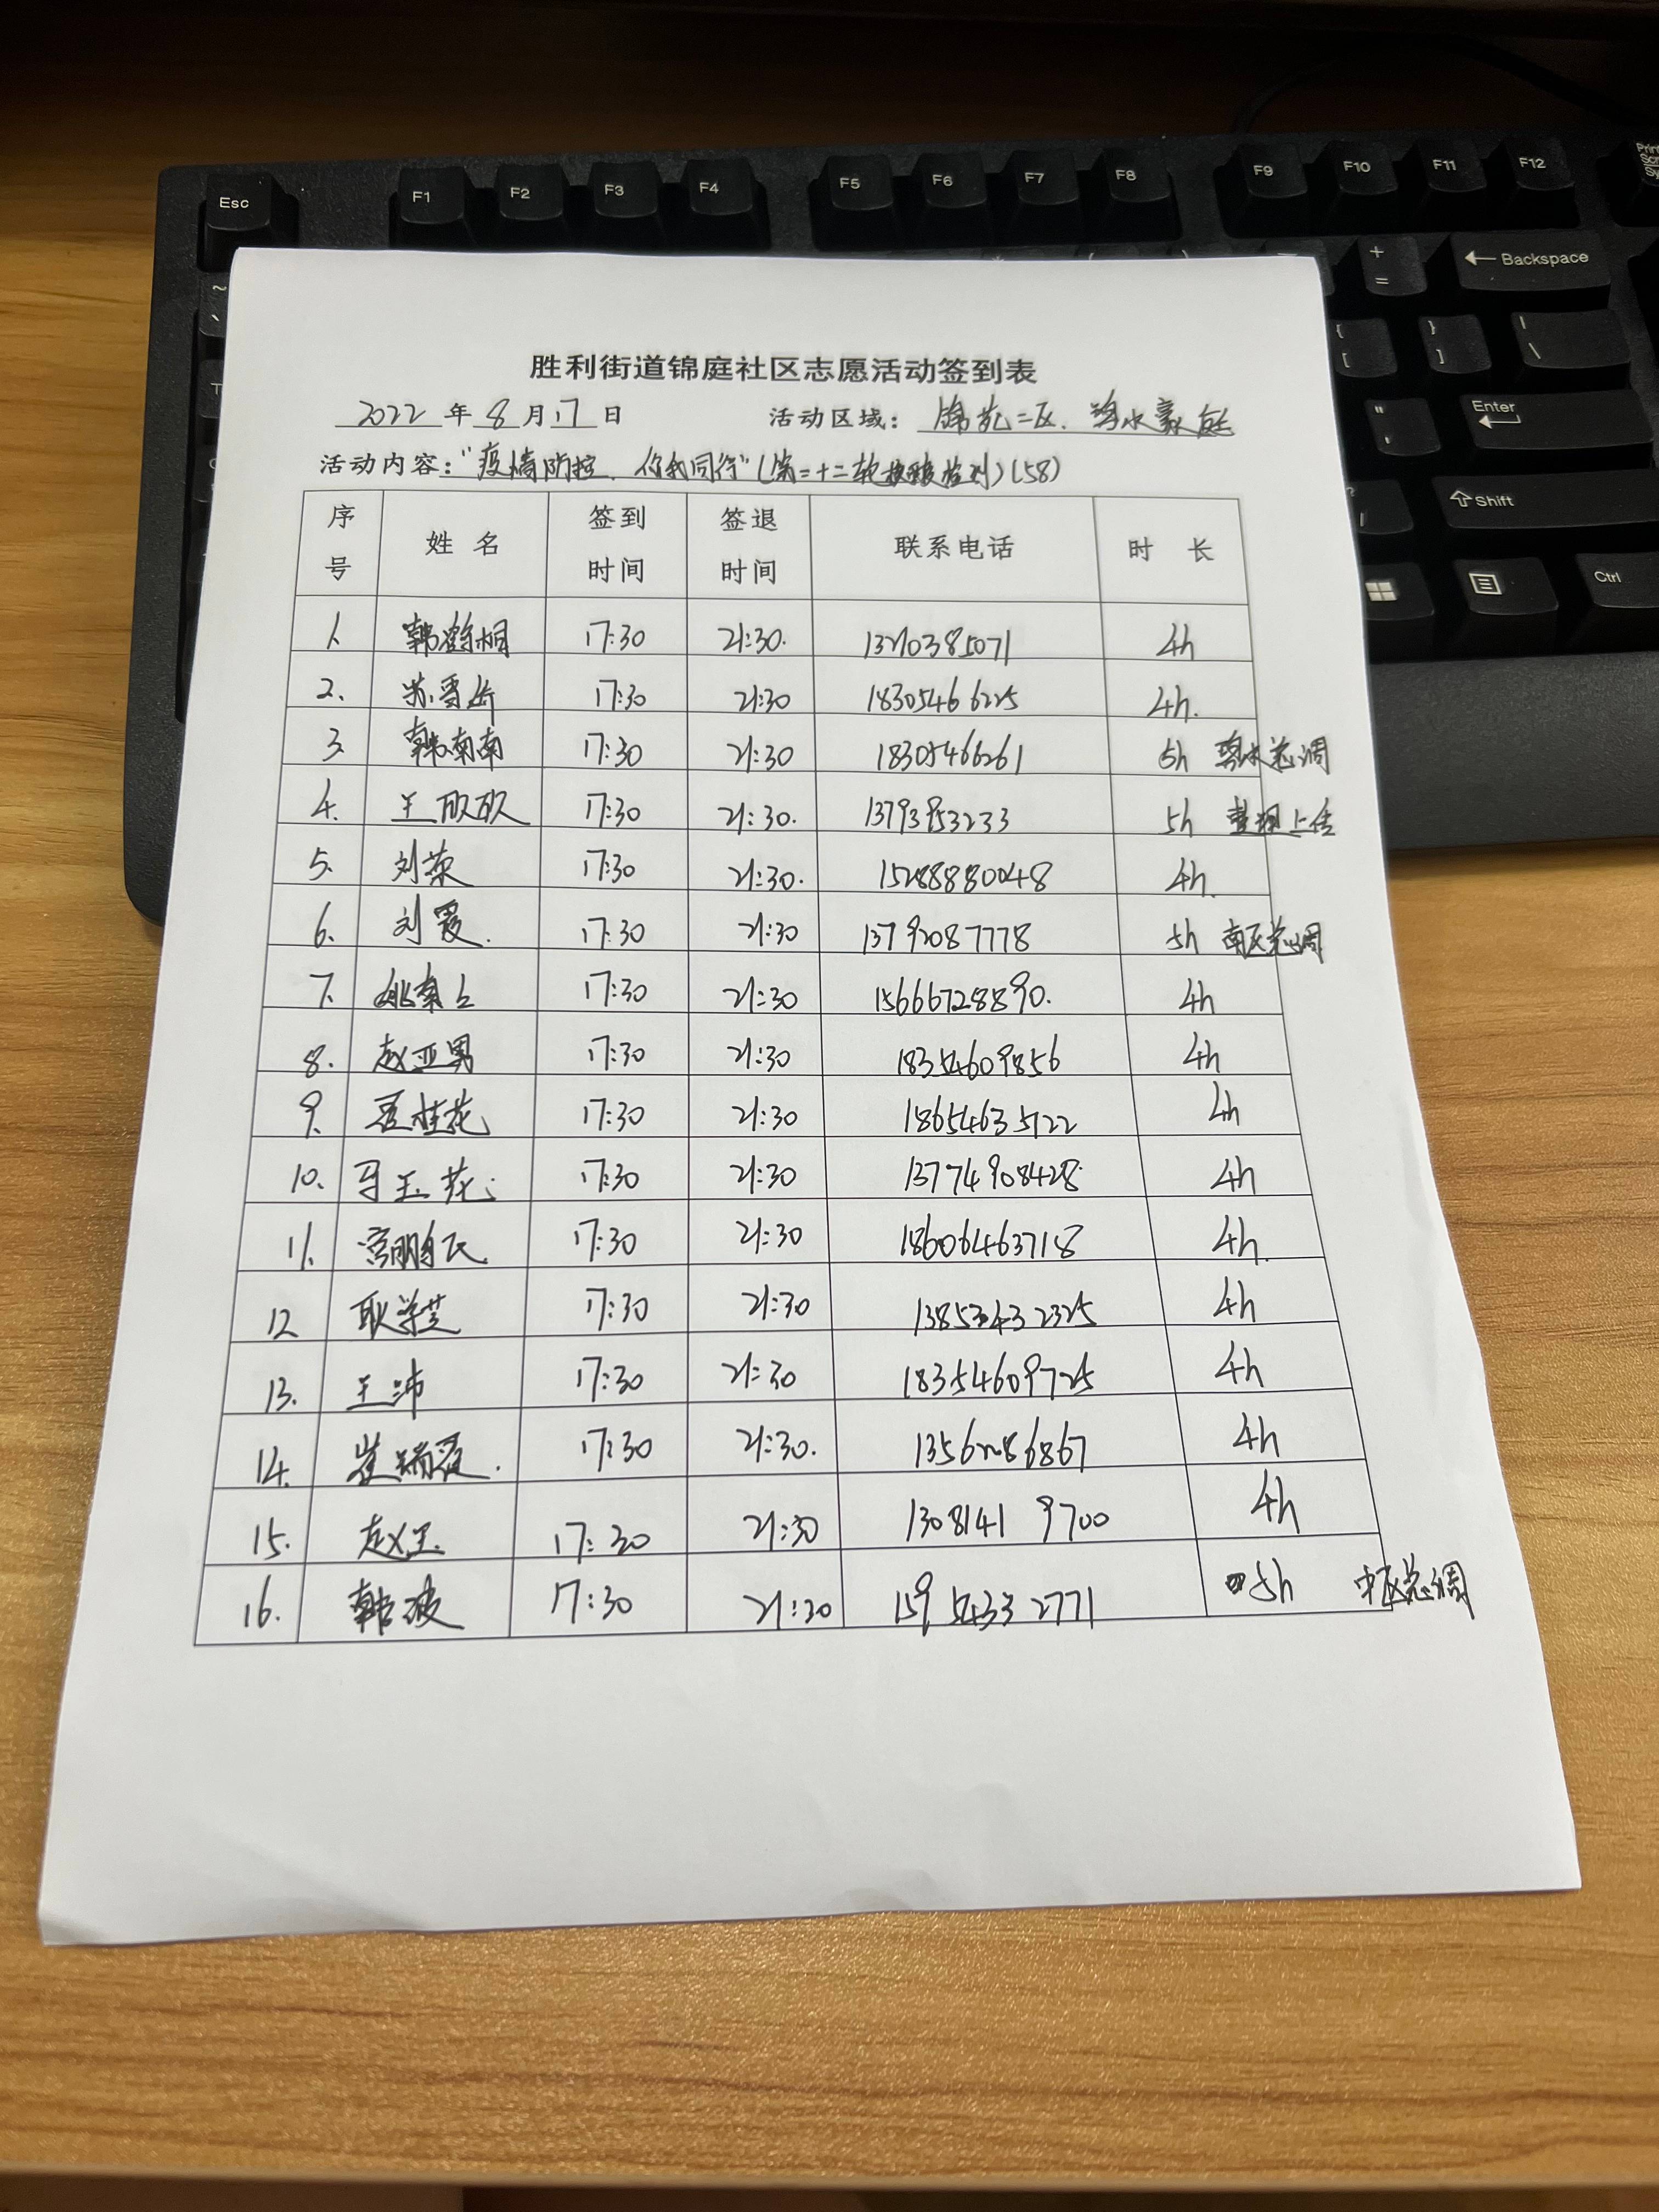 Esc F1 F2 F3 F4 F5 F6 F7 F8 F9 F10 F11 F12
Backspace
Enter
Shift
Ctrl
胜利街道锦庭社区志愿活动签到表
2022 年 8 月 17 日 活动区域: 锦苑二区. 豪庭
活动内容: "疫情防控、你我同行" (第二十二轮核酸检测) (58)
序号 姓名 签到时间 签退时间 联系电话 时长
1. 韩鹤桐 17:30 21:30. 13210385071 4h
2. 苏雪 17:30 21:30 18305466225 4h.
3. 韩南南 17:30 21:30 18305466261 5h 总调
4. 王 17:30 21:30. 13793953233 5h 整理上传
5. 刘荣 17:30 21:30. 15288880048 4h.
6. 刘霞. 17:30 21:30 13792087778 5h 南区总调
7. 姚 17:30 21:30 15666728890. 4h
8. 赵亚男 17:30 21:30 18354609856 4h
9. 桂花 17:30 21:30 18654635122 4h
10. 玉花 17:30 21:30 13774908428 4h
11. 17:30 21:30 18606463718 4h.
12 耿学芝 17:30 21:30 13853432325 4h
13. 王沛 17:30 21:30 18354609725 4h
14. 崔瑞霞. 17:30 21:30. 13562086867 4h
15. 赵玉 17:30 21:30 1308141 9700 4h
16. 韩波 17:30 21:30 159 5433 2771 5h 中区总调